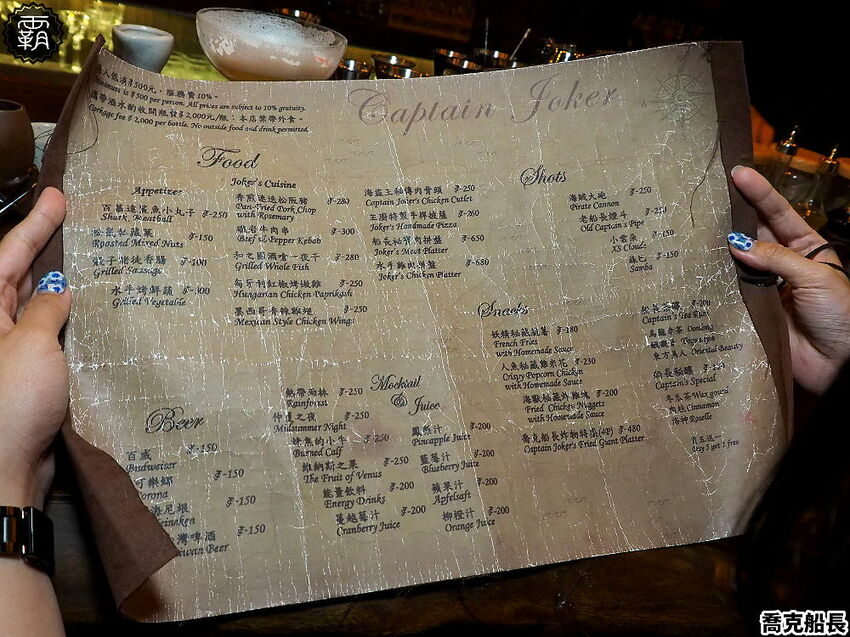 霸
每人低消$500元，服務費10%。
Minimum is $500 per person. All prices are subject to 10% gratuity.
攜帶酒水酌收開瓶費$2,000元/瓶；本店禁帶外食。
Corkage fee $2,000 per bottle. No outside food and drink permitted.
Captain Joker
Food
Appetizer
百慕達鯊魚小丸子 $-250
Shark Meatball
$-150
Roasted Mixed Nuts
$-100
Grilled Sausage
水手烤鮮蔬 $-300
Grilled Vegetable
Joker's Cuisine
香煎迷迭松阪豬 $-280
Pan-Fried Pork Chop
with Rosemary
牛肉串 $-300
Beef & Pepper Kebab
一夜干 $-280
Grilled Whole Fish
匈牙利紅椒烤嫩雞 $-250
Hungarian Chicken Paprikash
墨西哥香辣雞翅 $-250
Mexican Style Chicken Wings
海盜王秘傳肉骨頭 $-250
Captain Joker's Chicken Cutlet
主廚特製手桿披薩 $-260
Joker's Handmade Pizza
船長秘寶肉拼盤 $-650
Joker's Meat Platter
水手雞肉拼盤 $-680
Joker's Chicken Platter
Shots
海賊大砲 $-250
Pirate Cannon
老船長煙斗 $-250
Old Captain's Pipe
小雲朵 $-150
XS Cloud
森巴 $-150
Samba
Snacks
妖精秘藏氣薯 $-180
French Fries
with Homemade Sauce
人魚秘藏雞米花 $-230
Crispy Popcorn Chicken
with Homemade Sauce
海獸秘藏炸雞塊 $-200
Fried Chicken Nuggets
with Homemade Sauce
喬克船長炸物特攝(4P) $-480
Captain Joker's Fried Giant Platter
$-200
Captain's Tea Rum
烏龍冬茶 Oolong
東方美人 Oriental Beauty
船長秘釀 $-150
Captain's Special
冬瓜茶 Wax gourd
肉桂 Cinnamon
洛神 Roselle
買五送一
Buy 5 get 1 free
Beer
百威 $-150
Budweiser
可樂娜 $-150
Corona
海尼根 $-150
Heineken
台灣啤酒 $-150
Taiwan Beer
Mocktail
& Juice
熱帶雨林 $-250
Rainforest
仲夏之夜 $-250
Midsummer Night
烤焦的小牛 $-250
Burned Calf
維納斯之果 $-250
The Fruit of Venus
能量飲料 $-200
Energy Drinks
蔓越莓汁 $-200
Cranberry Juice
鳳梨汁 $-200
Pineapple Juice
藍莓汁 $-200
Blueberry Juice
蘋果汁 $-200
Apfelsaft
柳橙汁 $-200
Orange Juice
喬克船長